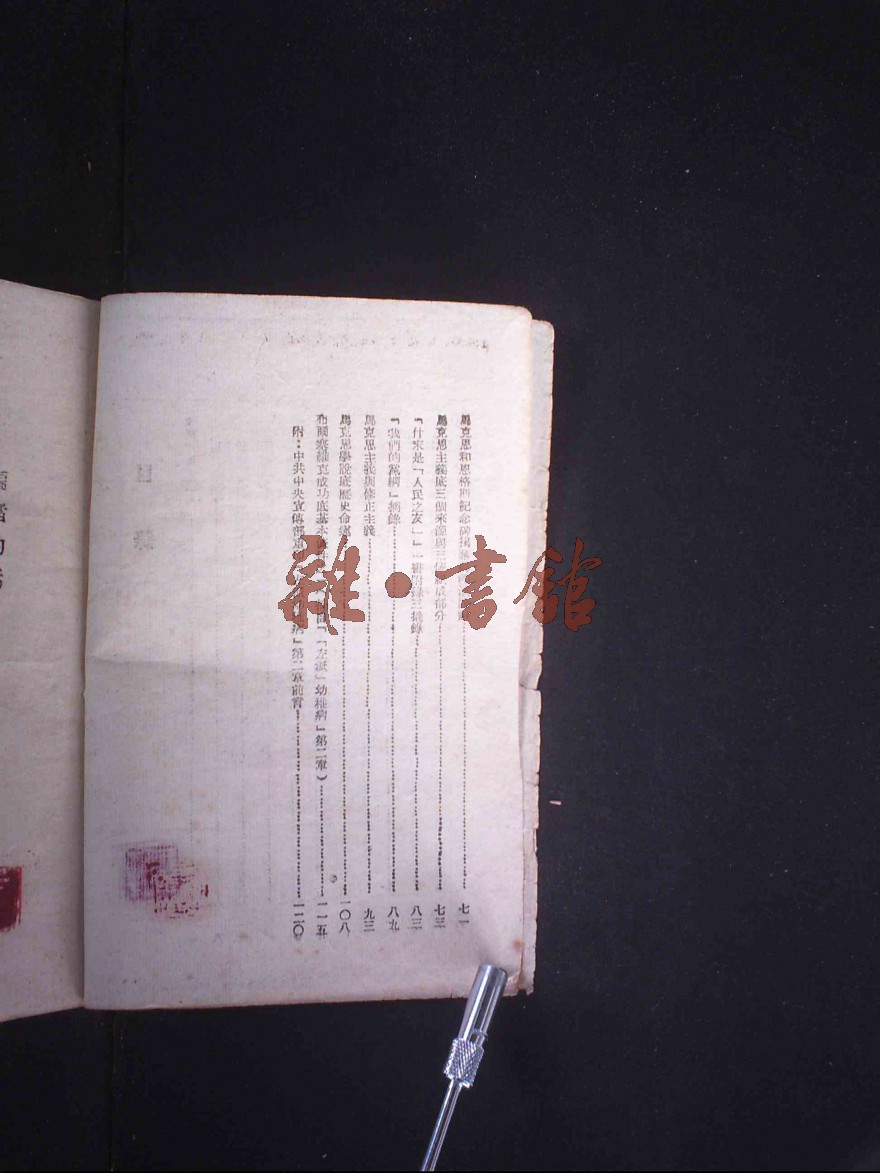 馬克思和恩格斯紀念碑揭幕 七一
馬克思主義底三個來源與三個組成部分 七三
「什末是「人民之友」」一書附錄三摘錄 八三
「我們的黨綱」摘錄 八九
馬克思主義與修正主義 九三
馬克思學說底歷史命運 一〇八
布爾塞維克成功底基本 「「左派」幼稚病」第二章） 一一五
附：中共中央宣傳部 病」第二章前言 一二〇
目錄
雜·書館